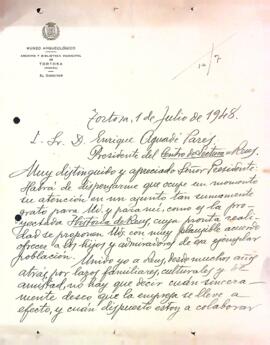 MUSEO ARQUEOLÓGICO
ARCHIVO Y BIBLIOTECA MUNICIPAL
DE
TORTOSA
EL DIRECTOR
Tortosa, 1 de Julio de 1948.
Sr. D. Enrique Aguadé Parés
Presidente del Centro de Lectura de Reus.
Muy distinguido y apreciado Señor Presidente:
Habrá de dispensarme que ocupe un momento
su atención en un asunto tan sumamente
grato para Vd. y para mí, como es la pro-
yectada Historia de Reus, cuya pronta reali-
dad se proponen Vds. con muy plausible acuerdo
ofrecer a los hijos y admiradores de esa ejemplar
población. Unido yo a Reus, desde muchos años
atrás por lazos familiares, culturales y de
amistad, no hay que decir cuán sincera-
mente deseo que la empresa se lleve a
efecto, y cuán dispuesto estoy a colaborar